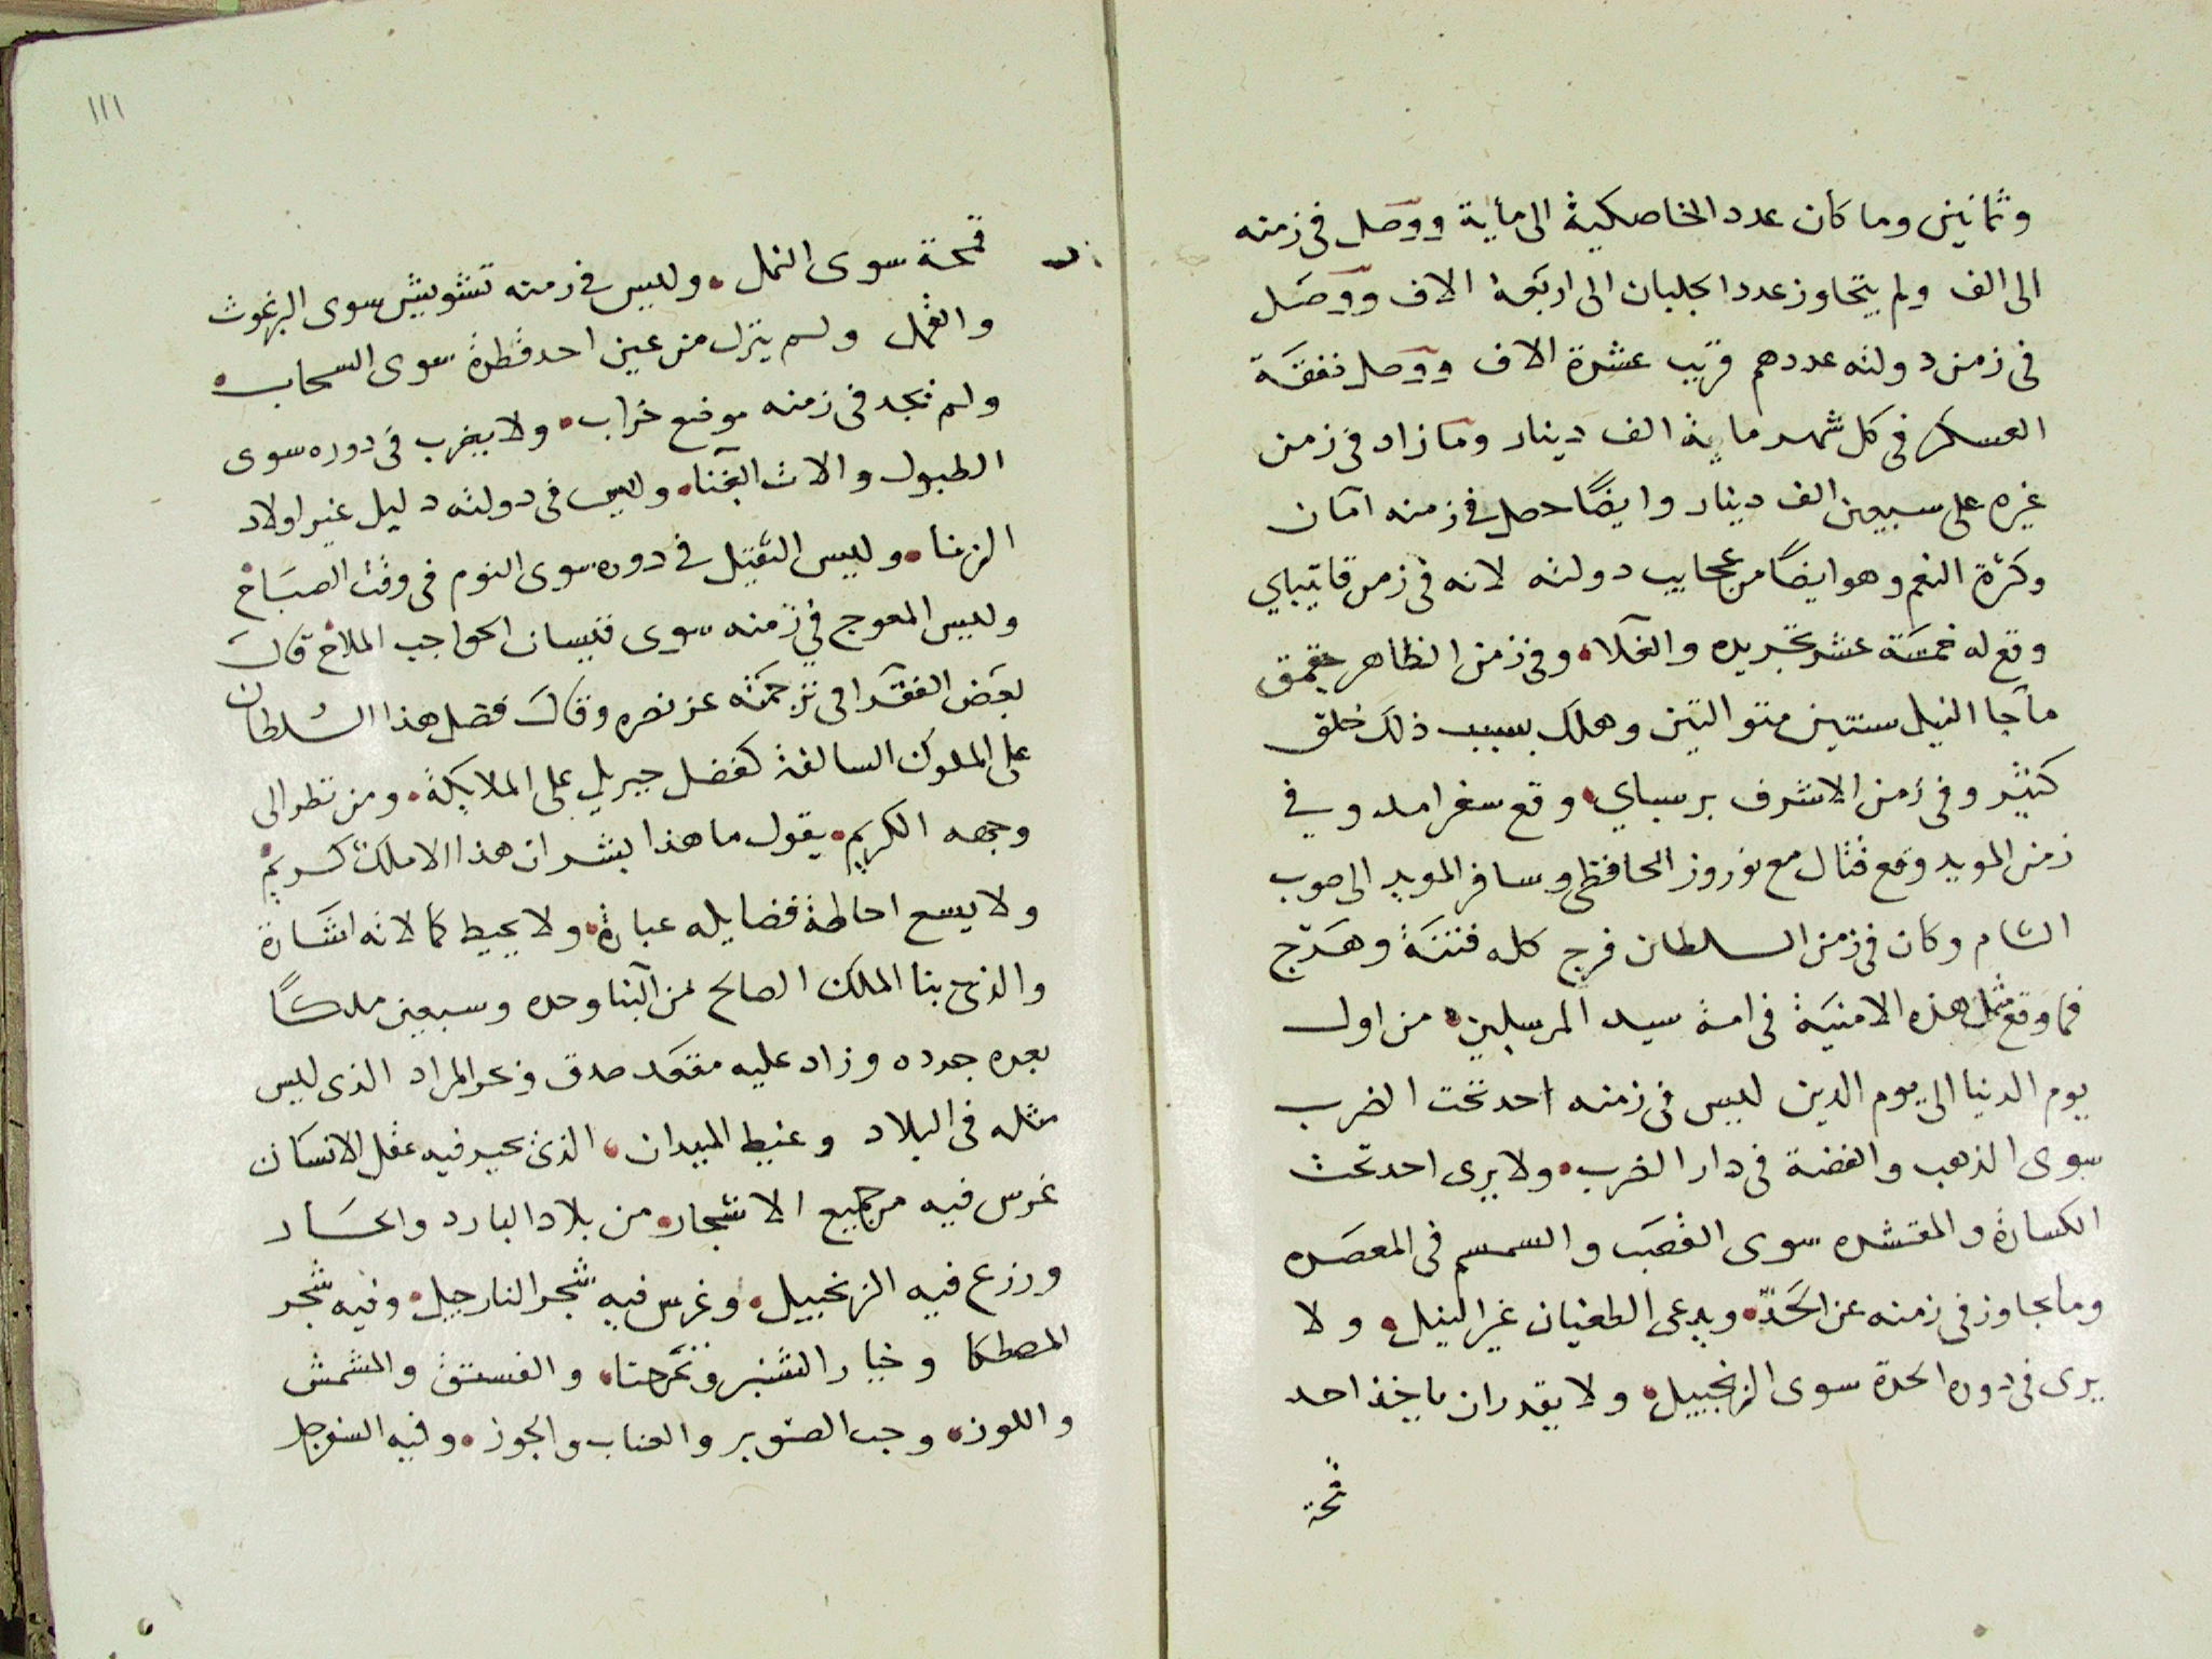 وثمانين وما كان عدد الخاصكية الى ماية ووصل فى زمنه
الى الف ولم يتجاوز عدد الجلبان الى اربعة الاف ووصل
فى زمن دولته عددهم قريب عشرة الاف ووصل نفقة
العسكر فى كل شهر ماية الف دينار وما زاد فى زمن
غيره على سبعين الف دينار وايضًا حصل فى زمنه امان
وكثرة النعم وهو ايضًا من عجايب دولته لانه فى زمن قايتباي
وقع له خمسة عشر تجريده والغلا، وفى زمن الظاهر جقمق
ما جا النيل سنتين متواليتين وهلك بسبب ذلك خلق
كثير وفى زمن الاشرف برسباي، وقع سفر امد وفي
زمن المويد وقع قتال مع نوروز الحافظى وسافر المويد الى صوب
الشام وكان فى زمن السلطان فرج كله فتنة وهَرَج
فما وقع مثل هذه الامنية فى امة سيد المرسلين، من اول
يوم الدنيا الى يوم الدين ليس فى زمنه احد تحت الضرب
سوى الذهب والفضة فى دار الضرب، ولا يرى احد تحت
الكسارة والمقشره سوى القصب والسمسم فى المعصره
وما تجاوز فى زمنه عن الحَدّ، ويدعى الطغيان غير النيل، ولا
يرى فى دوره الحدة سوى الزنجبيل، ولا يقدر ان ياخذ احد
قمحة
١١١
قمحة سوى النمل، وليس فى زمنه تشويش سوى البرغوث
والقمل ولم ينزل من عين احد قطرة سوى السحاب،
ولم نجد فى زمنه موضع خراب، ولا يضرب فى دوره سوى
الطبول والات الغنا، وليس فى دولته دليل غير اولاد
الزنا، وليس الثقيل فى دوره سوى النوم فى وقت الصباح
وليس المعوج في زمنه سوى قيسان الحواجب الملاح قال
بعض الفقرا فى ترجمته عز نصره وقال فضل هذا السلطان
على الملوك السالفة كفضل جبريل على الملايكة، ومن نظر الى
وجهه الكريم، يقول ما هذا بشر ان هذا الا ملك كريم
ولا يسع احاطة فضايله عبارة، ولا يحيط كمالاته اشارة
والذى بنا الملك الصالح من البنا وحده وسبعين ملكًا
بعده جدده وزاد عليه مقعد صدق ونحو المراد الذى ليس
مثله فى البلاد وغيط الميدان، الذى يحير فيه عقل الانسان
غرس فيه من جميع الاشجار، من بلاد البارد والحار
وزرع فيه الزنجبيل، وغرس فيه شجر النارجيل، وفيه شجر
المصطكا وخيار الشنبر وتمرحنا، والفستق والمشمش
واللوز، وحب الصنوبر والعناب والجوز، وفيه السفرجل